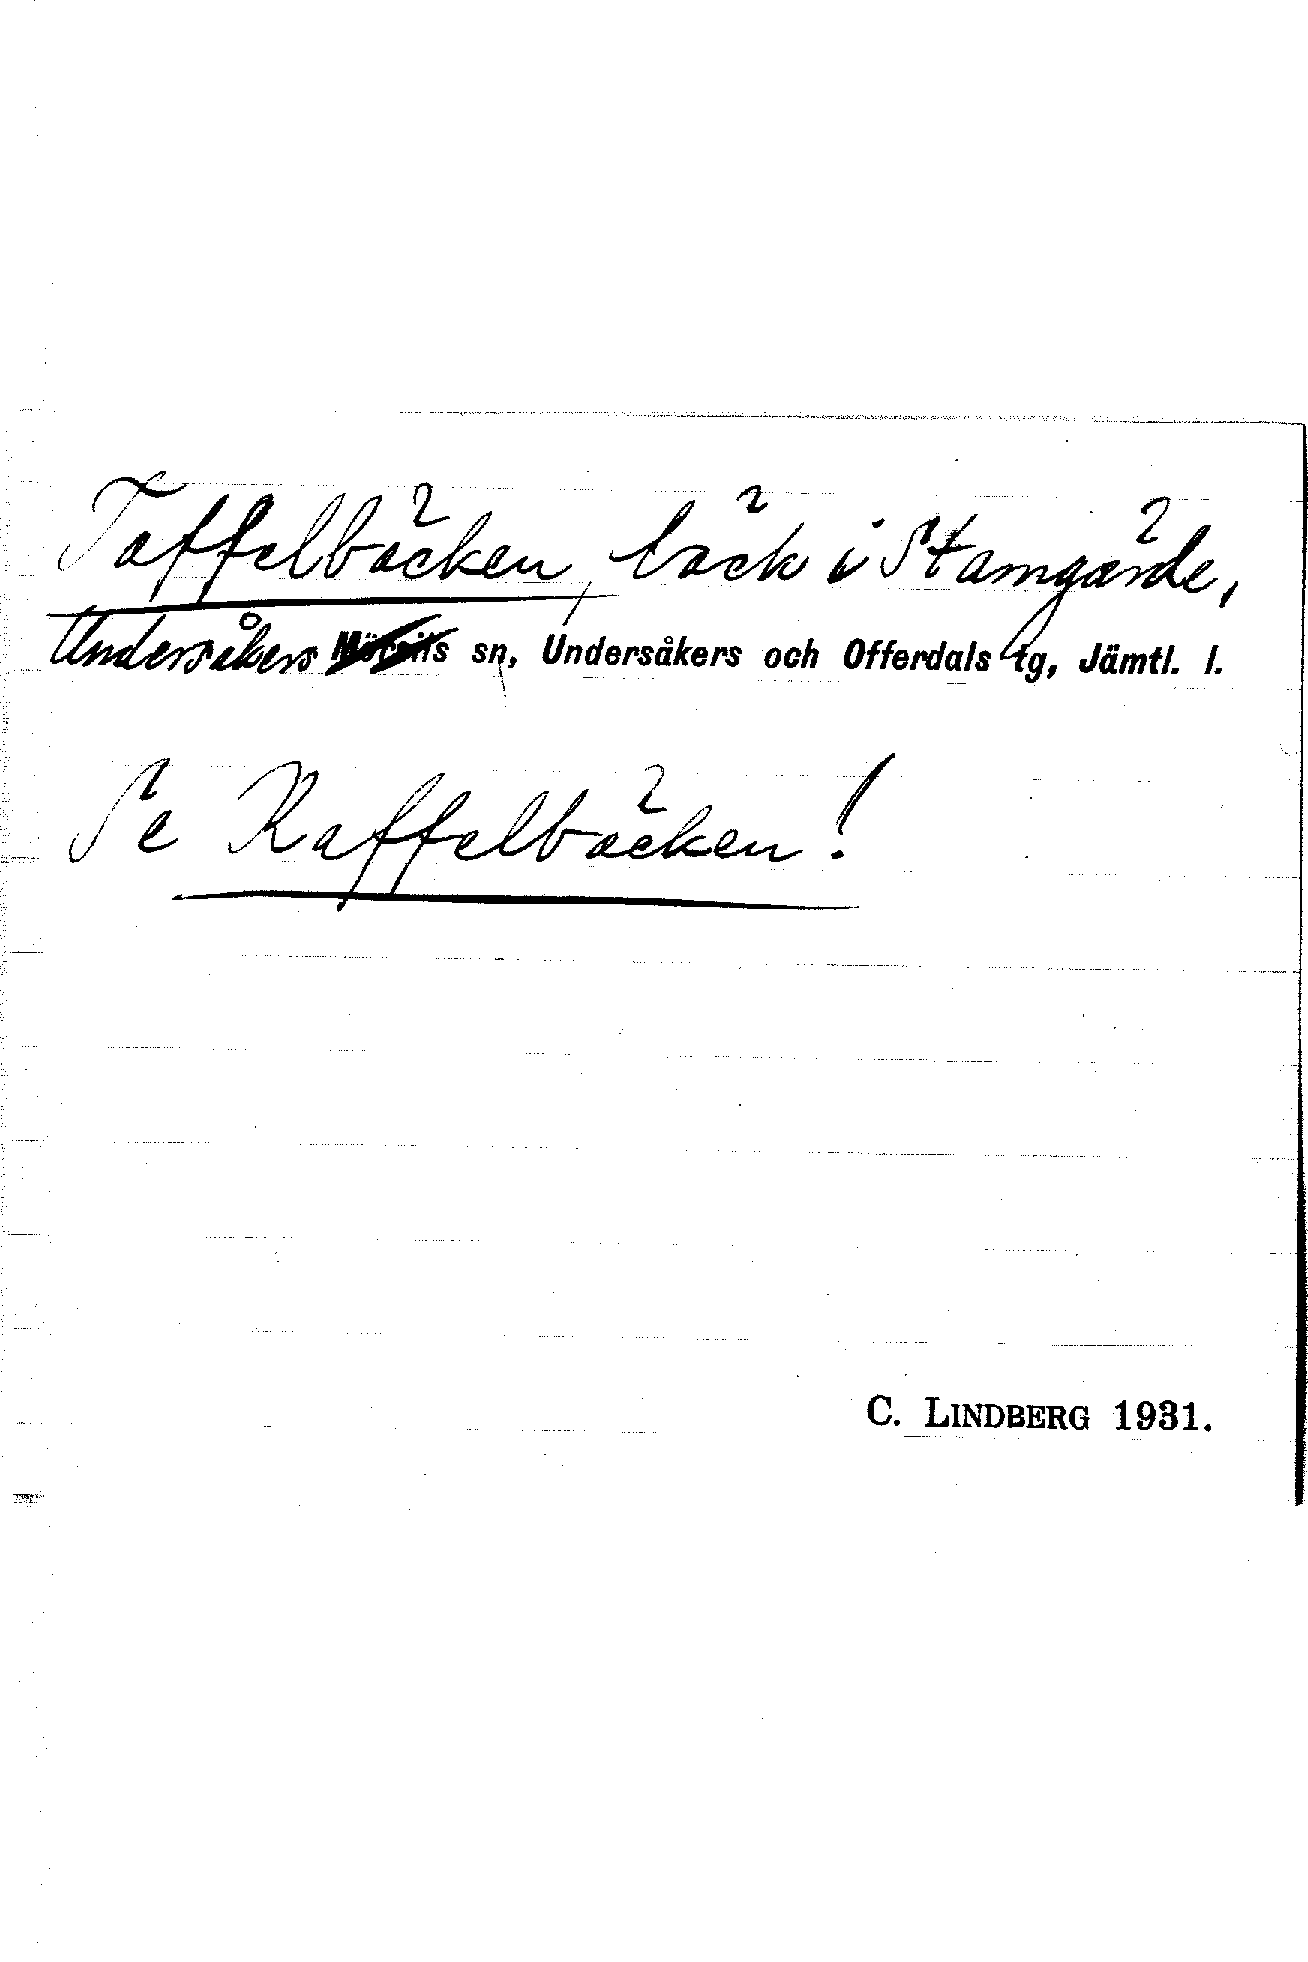 Taffelbäcken, bäck i Stamgärde,
Undersåkers Mörsils sn, Undersåkers och Offerdals tg, Jämtl. l.
Se Kaffelbäcken!
C. LINDBERG 1931.